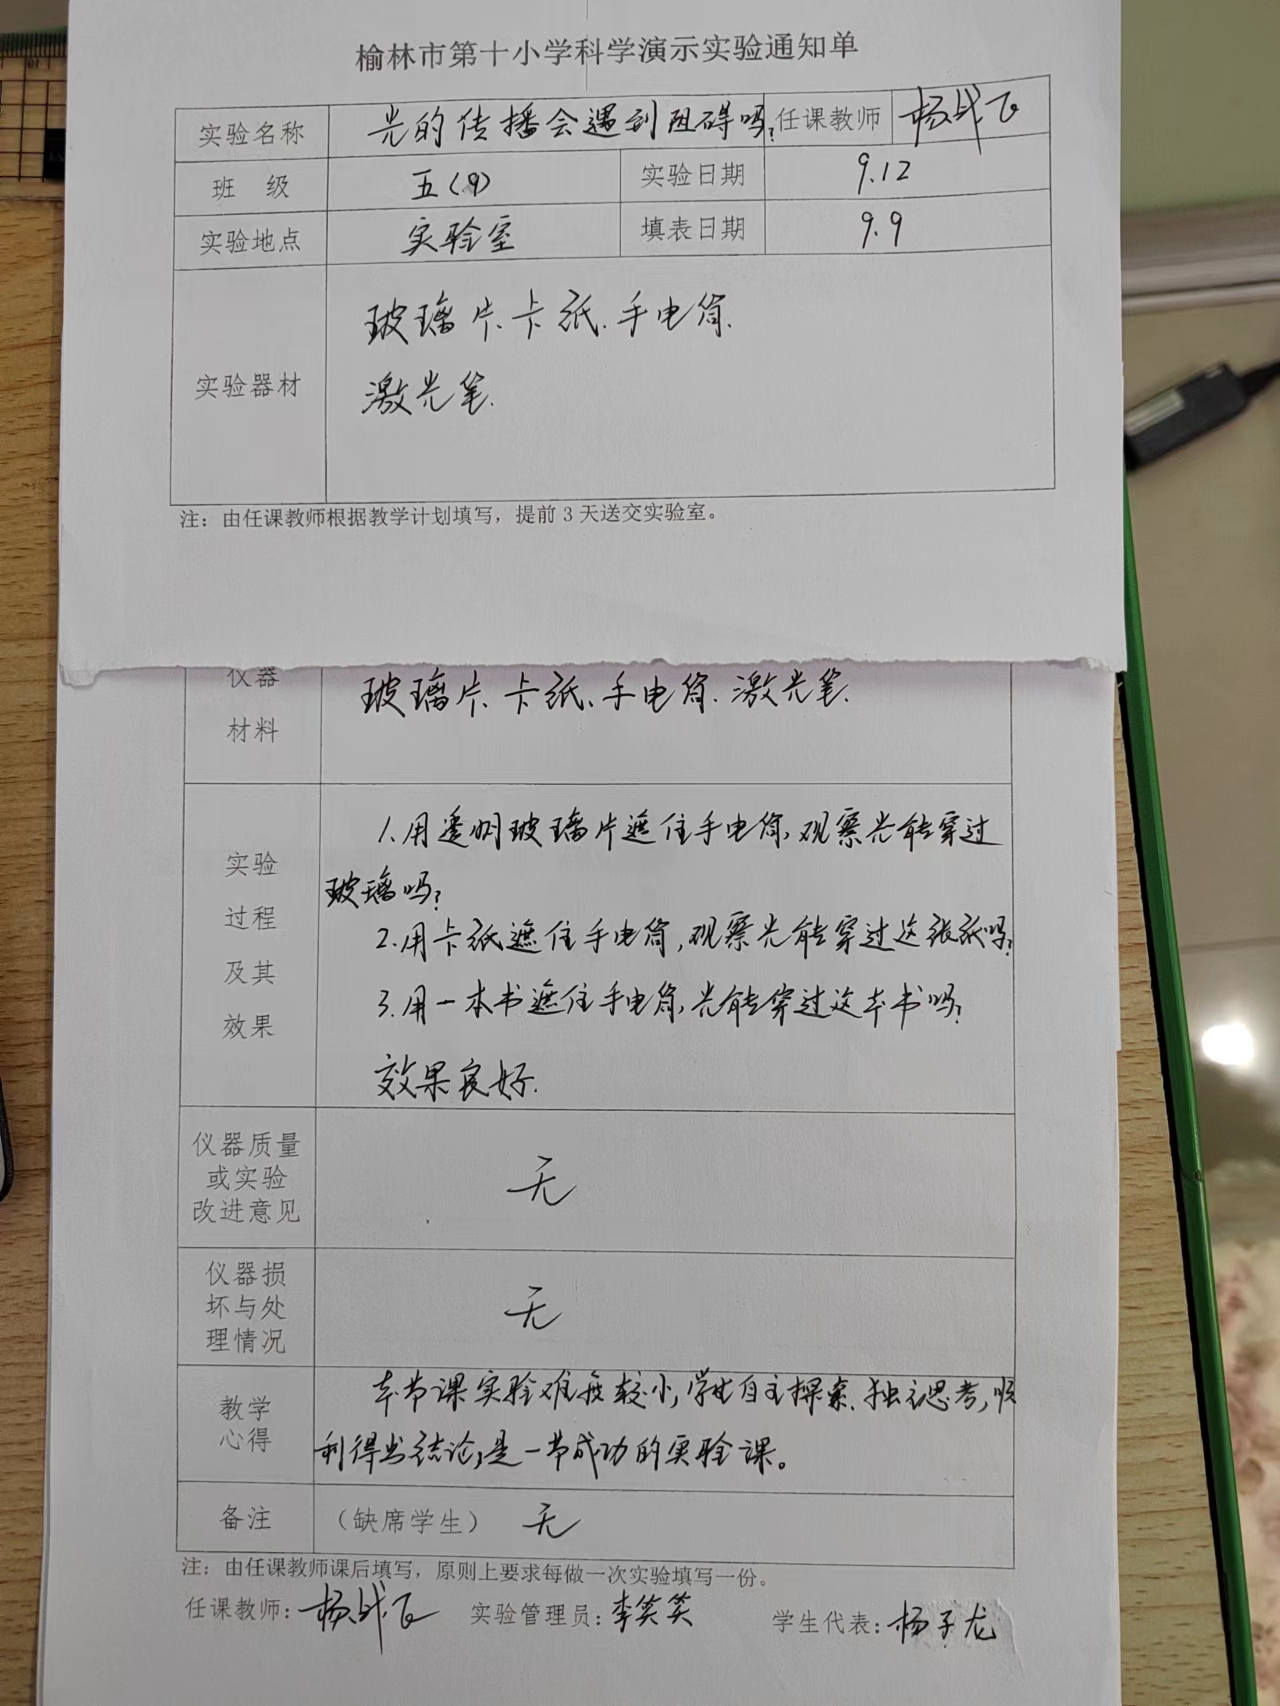 榆林市第十小学科学演示实验通知单
实验名称 光的传播会遇到阻碍吗? 任课教师 杨战飞
班 级 五(9) 实验日期 9.12
实验地点 实验室 填表日期 9.9
实验器材
玻璃片、卡纸、手电筒、
激光笔.
注：由任课教师根据教学计划填写，提前3天送交实验室。
仪器
材料
玻璃片、卡纸、手电筒、激光笔.
实验
过程
及其
效果
1.用透明玻璃片遮住手电筒,观察光能穿过
玻璃吗?
2.用卡纸遮住手电筒,观察光能穿过这张纸吗?
3.用一本书遮住手电筒,光能穿过这本书吗?
效果良好.
仪器质量
或实验
改进意见
无
仪器损
坏与处
理情况
无
教学
心得
本节课实验难度较小,学生自主探索、独立思考,顺
利得出结论,是一节成功的实验课。
备注 （缺席学生） 无
注：由任课教师课后填写，原则上要求每做一次实验填写一份。
任课教师：杨战飞 实验管理员：李笑笑 学生代表：杨子龙